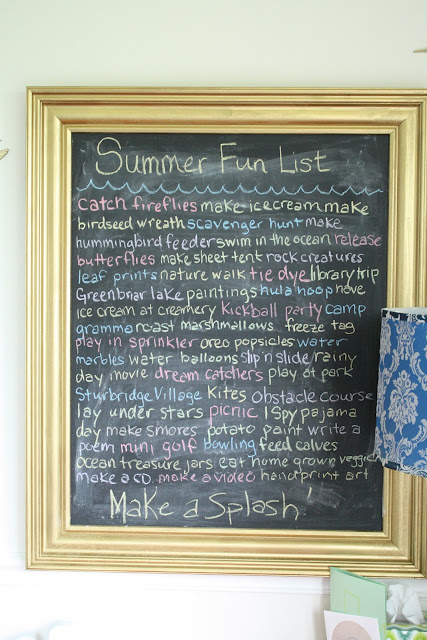 Summer Fun List
catch fireflies make icecream make
birdseed wreath scavenger hunt make
hummingbird feeder swim in the ocean release
butterflies make sheet tent rock creatures
leaf prints nature walk tie dye library trip
Greenbriar lake paintings hula hoop have
ice cream at creamery kickball party camp
gramma roast marshmallows freeze tag
play in sprinkler oreo popsicles water
marbles water balloons slip n slide rainy
day movie dream catchers play at park
Sturbridge Village kites obstacle course
lay under stars picnic I Spy pajama
day make smores potato paint write a
poem mini golf bowling feed calves
ocean treasure jars eat home grown veggies
make a CD make a video handprint art
Make a Splash!